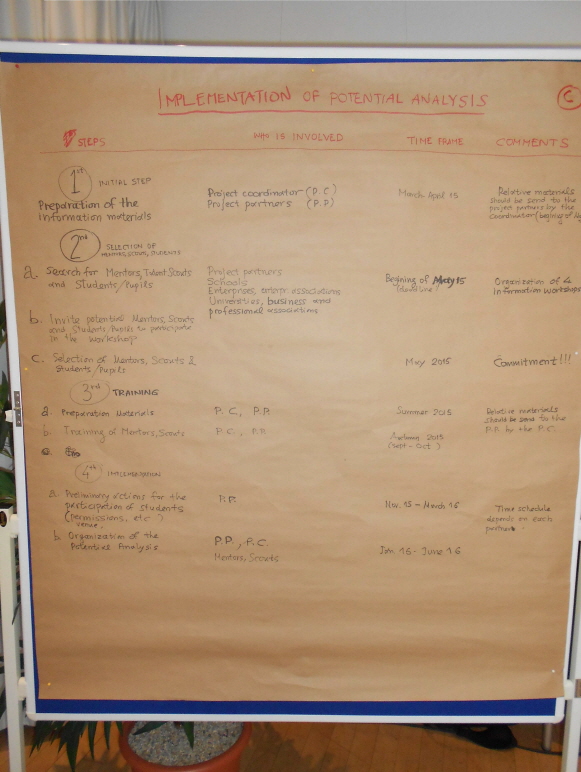 IMPLEMENTATION OF POTENTIAL ANALYSIS
C
STEPS WHO IS INVOLVED TIME FRAME COMMENTS
1st INITIAL STEP
Preparation of the
information materials
Project coordinator (P.C)
Project partners (P.P)
March, April 15
Relative materials
should be send to the
project partners by the
coordinator (begining of
2nd SELECTION OF
MENTORS, SCOUTS, STUDENTS
a. Search for Mentors, Talent Scouts
and Students/Pupils
Project partners
Schools
Enterprises, enterpr. associations
Universities, business and
professional associations
Begining of May 15
(deadline)
Organization of
Information Workshops
b. Invite potential Mentors, Scouts
and Students/Pupils to participate
in the workshop
c. Selection of Mentors, Scouts &
Students/Pupils
May 2015
Commitment!!!
3rd TRAINING
a. Preparation Materials P.C, P.P. Summer 2015
Relative materials
should be send to the
P.P. by the P.C.
b. Training of Mentors, Scouts P.C, P.P. Autumn 2015
(Sept-Oct)
4th IMPLEMENTATION
a. Preliminary actions for the
participation of students
(permissions, etc)
venue,
P.P.
Nov. 15 - March 16
Time schedule
depends on each
partner.
b. Organization of the
Potential Analysis
P.P., P.C.
Mentors, Scouts
Jan 16 - June 16